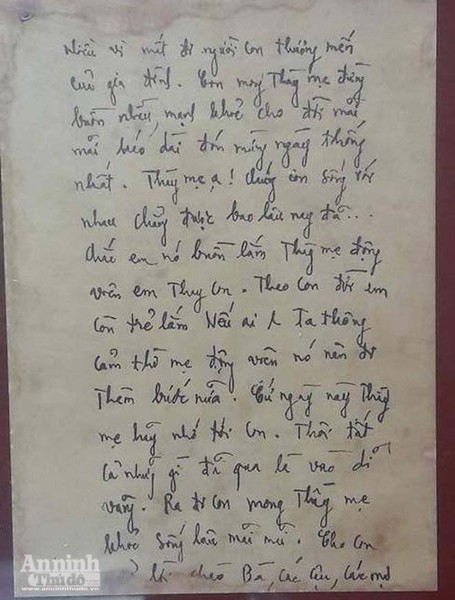 nhiều vì mất đi người con thương mến
của gia đình. Con mong Thầy mẹ đừng
buồn nhiều mạnh khỏe cho đời mãi
mãi kéo dài đón mừng ngày thống
nhất. Thầy mẹ ạ! chúng con sống với
nhau chẳng được bao lâu nay đã...
chắc em nó buồn lắm Thầy mẹ động
viên em Thay Con. Theo con đời em
còn trẻ lắm Nếu ai Ta thông
cảm thì mẹ động viên nó nên đi
Thêm bước nữa. Cứ ngày này Thầy
mẹ hãy nhớ tới Con. Thôi tất
cả những gì đã qua là vào dĩ
vãng. Ra đi con mong Thầy mẹ
khỏe sống lâu mãi mãi. Cho con
chào Bà, các cậu, các mợ
Anninh
Thủđô
www.anninhthudo.vn